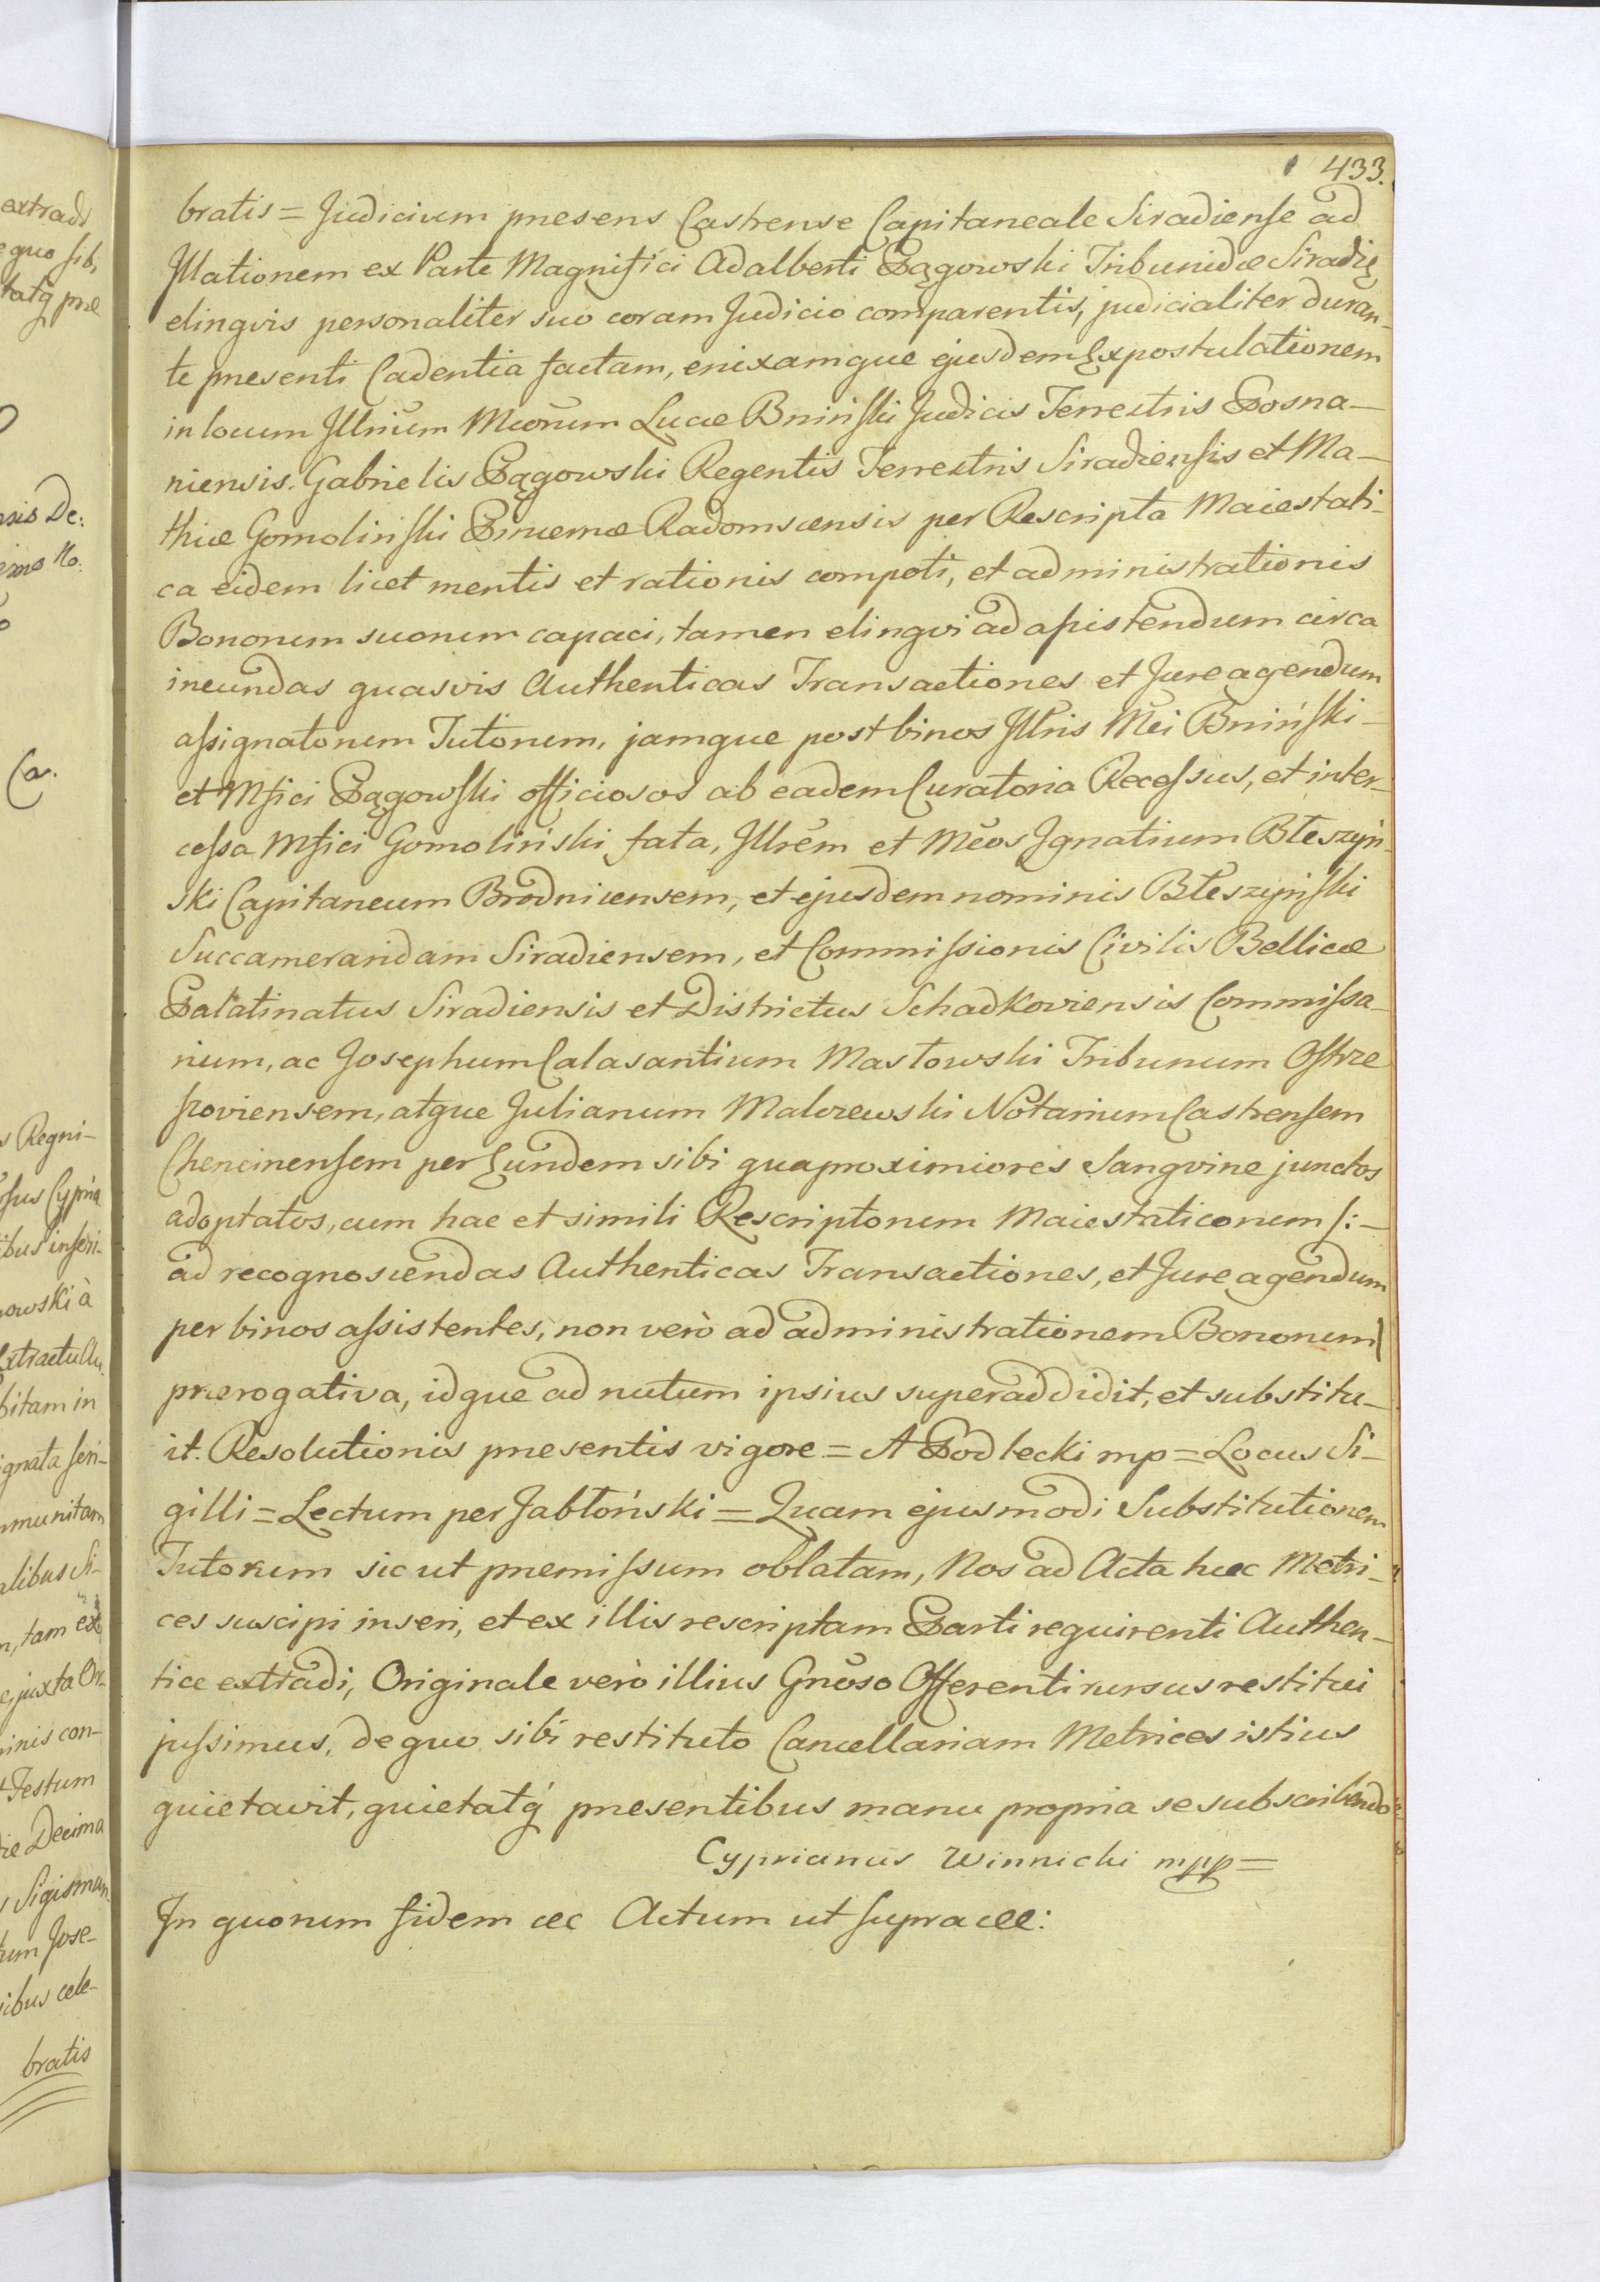 433.
bratis = Judicium presens Castrense Capitaneale Siradiense ad
Illationem ex Parte Magnifici Adalberti Pągowski Tribunidæ Siradię
elingvis personaliter suo coram Judicio comparentis, judicialiter duran-
te presenti Cadentia factam, enixamque ejusdem Expostulationem
in locum Illrium Mcorum Lucæ Bniński Judicis Terrestris Posna-
niensis. Gabrielis Pągowski Regentis Terrestris Siradiensis et Ma-
thiæ Gomoliński Pincernæ Radomscensis per Rescripta Maiestati-
ca eidem licet mentis et rationis compoti, et administrationis
Bonorum suorum capaci, tamen elingvi ad assistendum circa
ineundas quasvis Authenticas Transactiones et Jure agendum
assignatorum Tutorum, jamque post binos Illris Mci Bniński-
et Mfici Pągowski officiosos ab eadem Curatoria Recessus, et inter-
cessa Mfici Gomoliński fata, Illrem et Mcos Ignatium Błeszyń-
ski Capitaneum Brodnicensem, et ejusdem nominis Błeszyński
Succameraridam Siradiensem, et Commissionis Civilis Bellicæ
Palatinatus Siradiensis et Districtus Schadkoviensis Commissa-
rium, ac Josephum Calasantium Masłowski Tribunum Ostrze
szoviensem, atque Julianum Malczewski Notarium Castrensem
Chencinensem per Eundem sibi qua proximiores Sangvine junctos
adoptatos, cum hac et simili Rescriptorum Maiestaticorum /:-
ad recognoscendas Authenticas Transactiones, et Jure agendum
per binos assistentes, non verò ad administrationem Bonorum/
prærogativa, idque ad nutum ipsius superaddidit, et substitu-
it. Resolutionis presentis vigore = A Podlecki mp = Locus Si-
gilli = Lectum per Jabłoński = Quam ejusmodi Substitutionem
Tutorum sic ut premissum oblatam, Nos ad Acta hæc Metri-
ces suscipi inseri, et ex illis rescriptam Parti requirenti Authen-
tice extradi, Originale verò illius Gnoso Offerenti rursus restitui
jussimus, de quo sibi restituto Cancellariam Metrices istius
quietavit, quietatq́ presentibus manu propria se subscribendo
Cyprianus Winnicki mpp =
In quorum fidem &c Actum ut supra &c:
extradi
e quo sibi
tatq præ
Ca.
s Regni-
ibus inseri-
owski à
bitam in
ignata seri-
mmunitam
alibus Si-
, tam ex
e, juxta Or-
inis con-
Testum
ie Decima
Sigismun-
um Jose-
ibus cele-
bratis